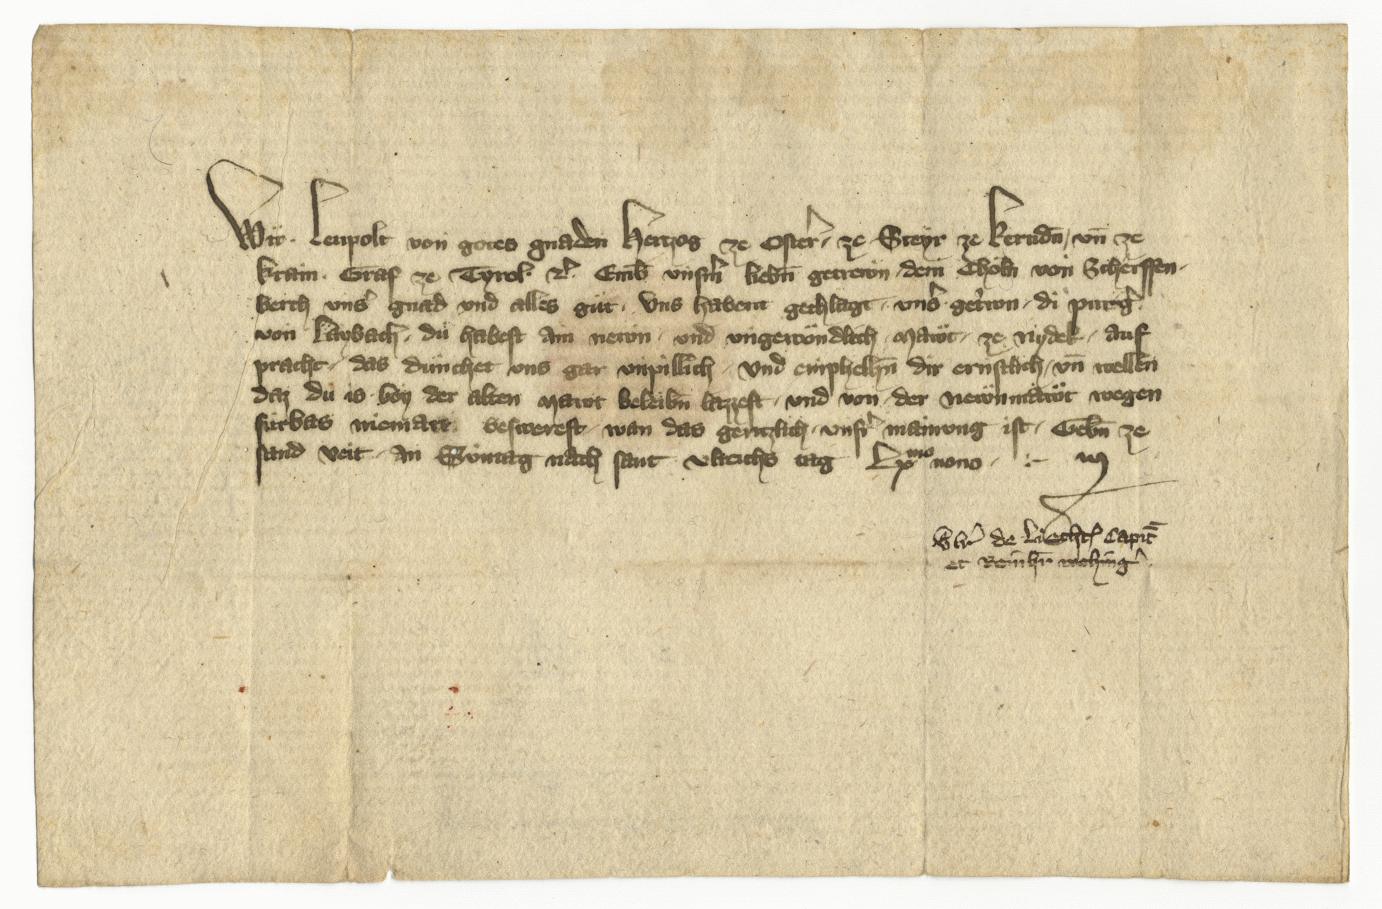 Wir Leupolt von gotes gnaden Hertzog ze Osterr ze Steyr ze Kernden vn ze
krain Graf ze Tyrol etc Emb unserm lieben getrewn dem Chöln von Scherffen
berch vnser gnad vnd alles gut Vns habent gechlagt vnser getrwn di purger
von Laybach du habest ain newn vnd vngewöndlich Mawt ze Nydek auf
pracht das dunchet vns gar vnpillich Vnd emphelhen dir ernstlich vn wellen
daz du is bey der alten Mawt beleibn lazzest vnd von der newn mawt wegen
furbas niemant beswerest wan das gentzlich vnser mainung ist Gebn ze
sand Veit An Suntag nach sant Vlreichs tag Lxxmo nono
de Liechtst Capit
et Reinhr wehinger